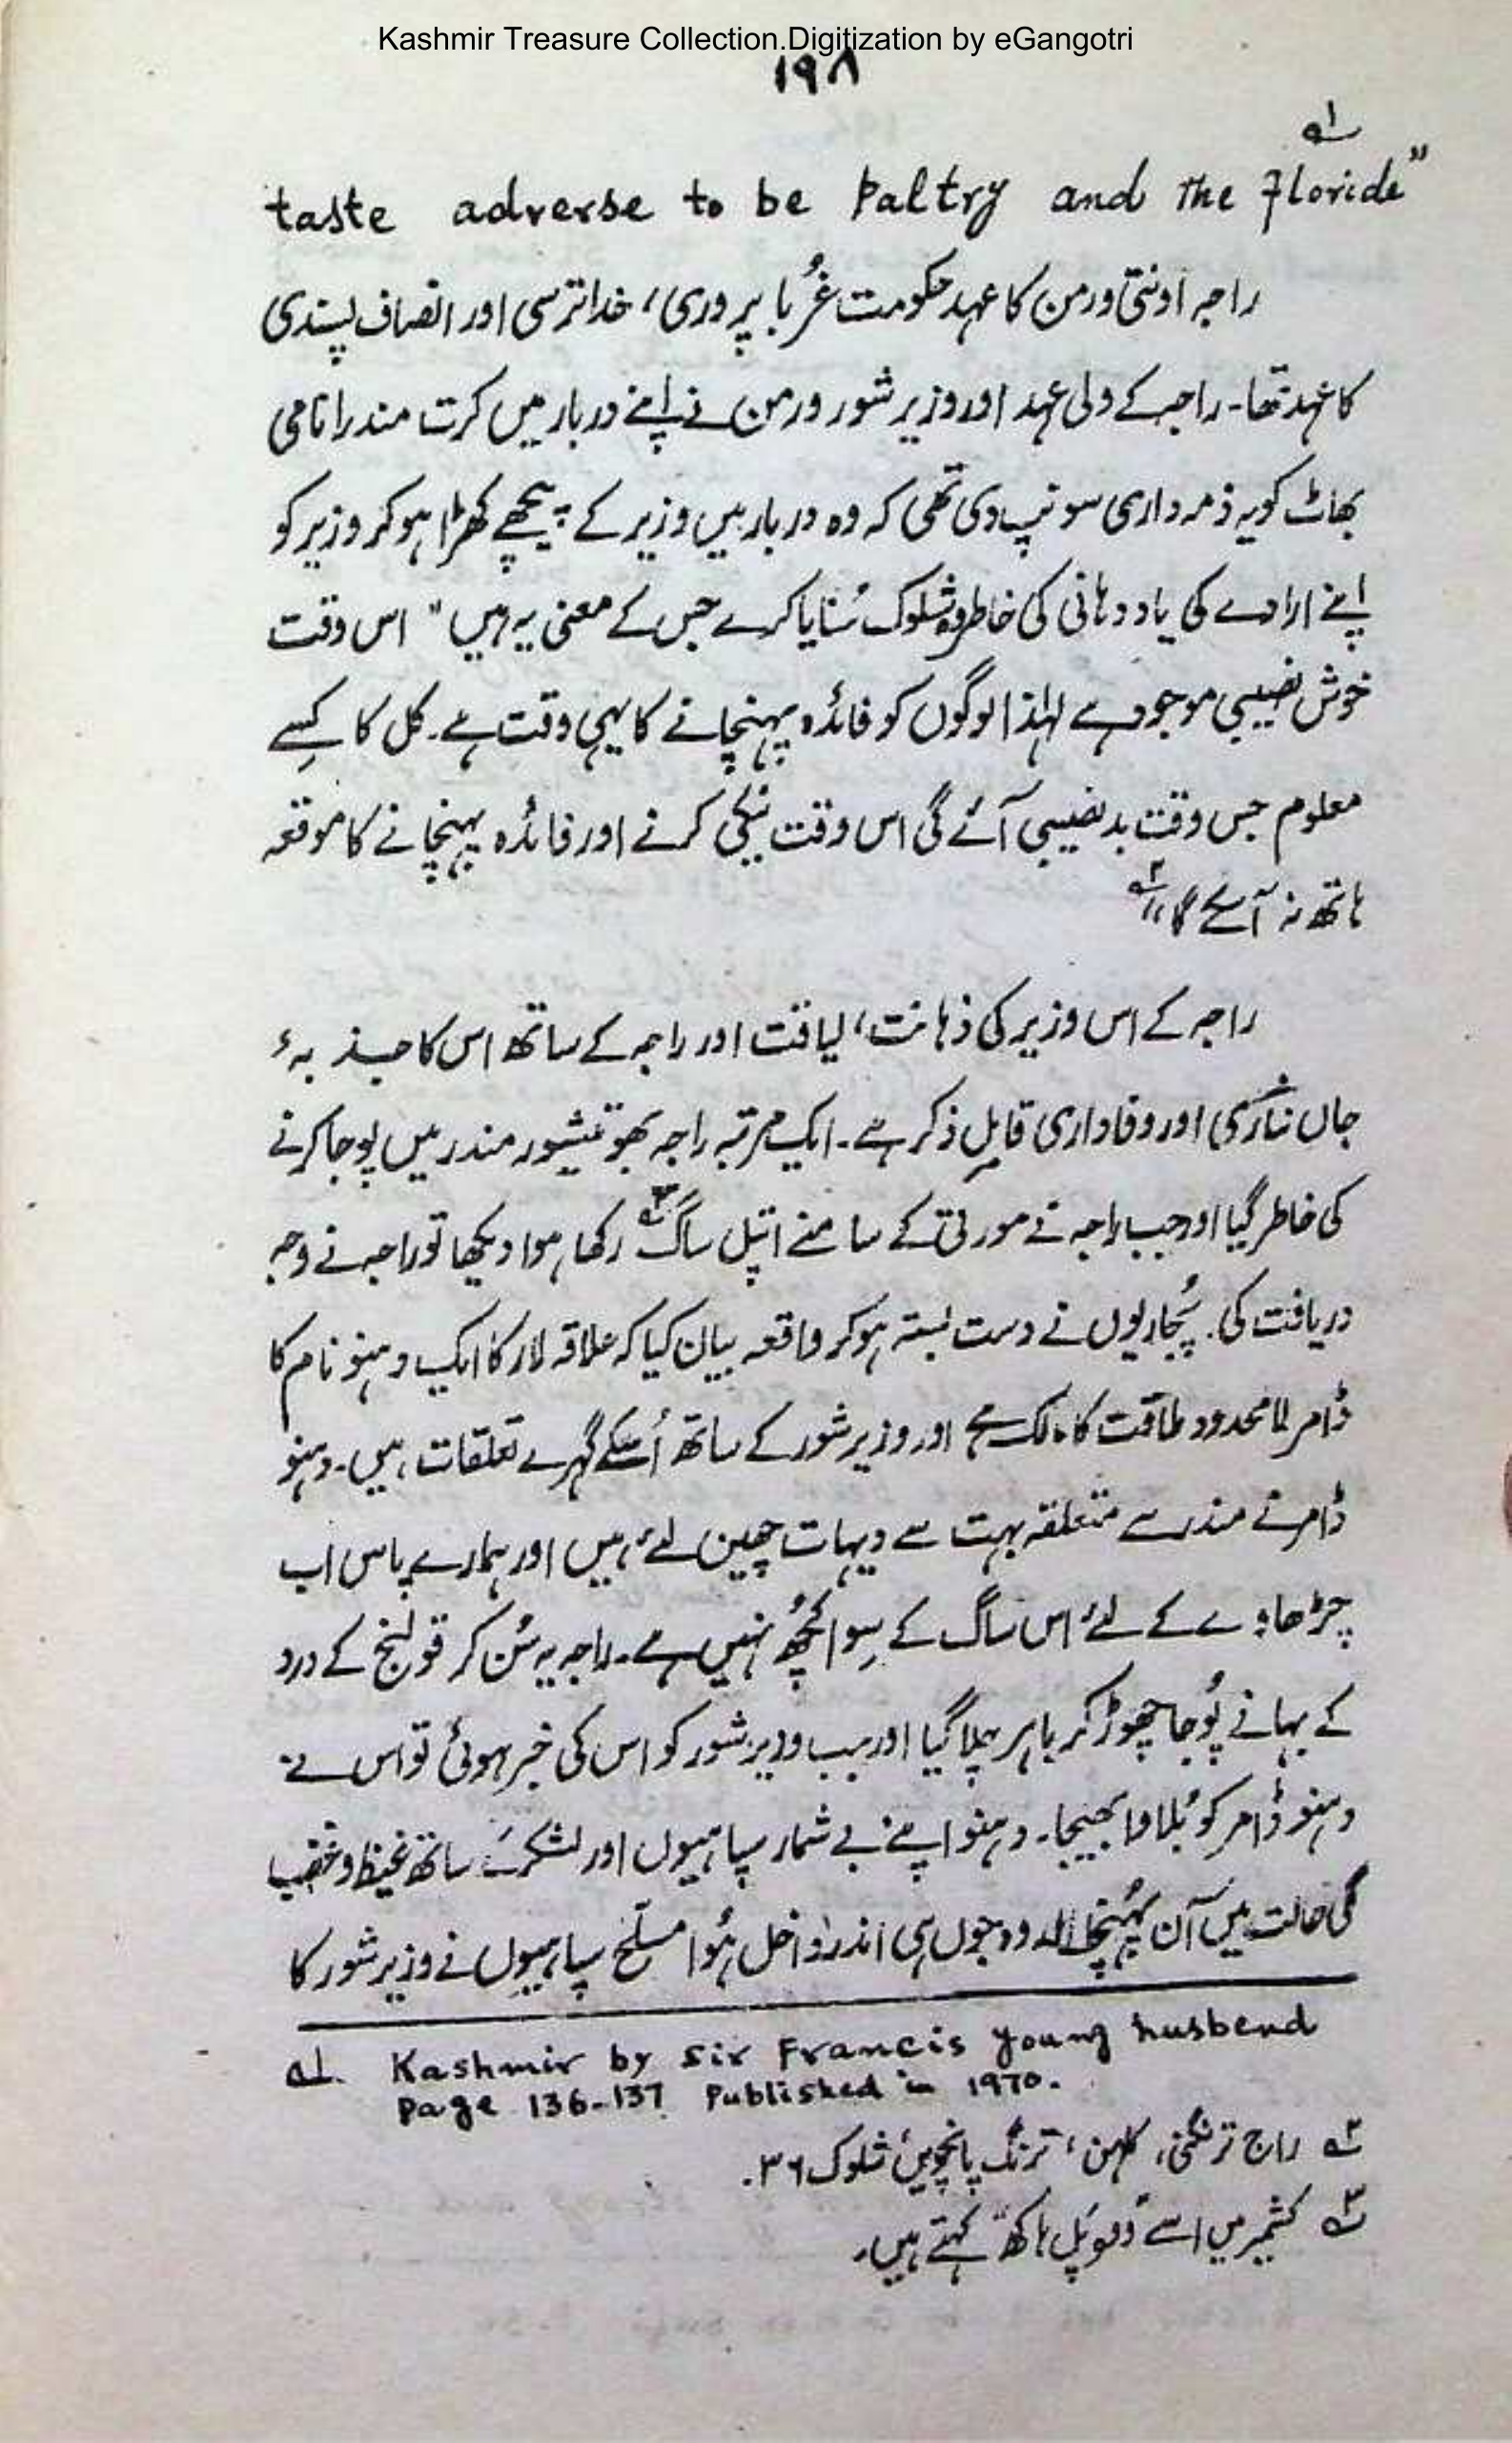 Kashmir Treasure Collection.Digitization by eGangotri
۱۹۸
taste adverse to be paltry and the Floride" ۱؎
راجہ اونتی ورمن کا عہد حکومت غُربا پروری، خدا ترسی اور انصاف پسندی
کا عہد تھا۔ راجہ کے ولی عہد اور وزیر شور ورمن نے اپنے دربار میں کرت مندرا نامی
بھاٹ کو یہ ذمہ داری سونپ دی تھی کہ وہ دربار میں وزیر کے پیچھے کھڑا ہو کر وزیر کو
اپنے ارادے کی یاد دہانی کی خاطر وہ شلوک سُنایا کرے جس کے معنی یہ ہیں "اس وقت
خوش نصیبی موجود ہے لہٰذا لوگوں کو فائدہ پہنچانے کا یہی وقت ہے۔ کل کا کسِے
معلوم جس وقت بدنصیبی آئے گی اس وقت نیکی کرنے اور فائدہ پہنچانے کا موقعہ
ہاتھ نہ آسکے گا" ۲؎
راجہ کے اس وزیر کی ذہانت، لیاقت اور راجہ کے ساتھ اس کا جذبہء
جاں نثاری اور وفاداری قابلِ ذکر ہے۔ ایک مرتبہ راجہ بھوتیشور مندر میں پوجا کرنے
کی خاطر گیا اور جب راجہ نے مورتی کے سامنے اتپل ساگ ۳؎ رکھا ہوا دیکھا تو راجہ نے وجہ
دریافت کی۔ پُجاریوں نے دست بستہ ہو کر واقعہ بیان کیا کہ علاقہ لار کا ایک دہنو نام کا
ڈامر لامحدود طاقت کا مالک ہے اور وزیر شور کے ساتھ اُسکے گہرے تعلقات ہیں۔ دہنو
ڈامر نے مندر سے متعلقہ بہت سے دیہات چھین لئے ہیں اور ہمارے پاس اب
چڑھاوے کے لئے اس ساگ کے سِوا کُچھ نہیں ہے۔ راجہ یہ سُن کر قولنج کے درد
کے بہانے پُوجا چھوڑ کر باہر چلا گیا اور جب وزیر شور کو اس کی خبر ہوئی تو اس نے
دہنو ڈامر کو بُلاوا بھیجا۔ دہنو اپنے بے شمار سپاہیوں اور لشکر کے ساتھ غیظ و غضب
کی حالت میں آن پہُنچا اور وہ جوں ہی اندر داخل ہُوا مسلّح سپاہیوں نے وزیر شور کا
۱؎ Kashmir by Sir Francis young husbend
Page 136-137 Published in 1970.
۲؎ راج ترنگنی، کلہن، ترنگ پانچویں شلوک ۳۶۔
۳؎ کشمیر میں اسے "وپل ہاکھ" کہتے ہیں۔